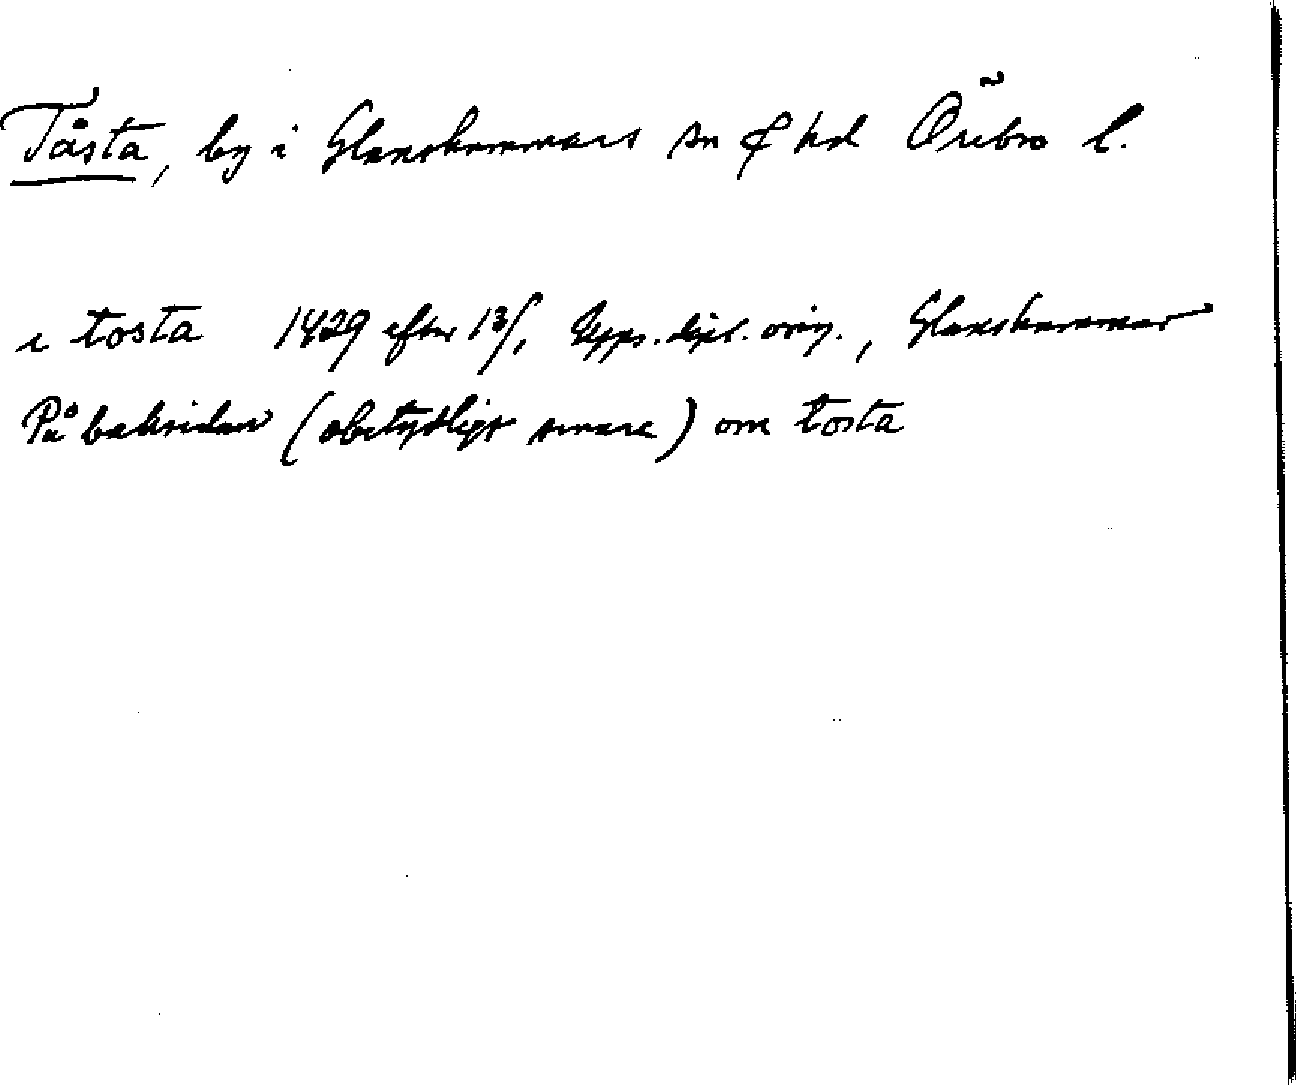 Tåsta, by i Glanshammars sn & hd Örebro l.
i tosta 1429 efter 13/1 Upps. dipl. orig., Glanshammar
På baksidan (obetydligt senare) om tosta